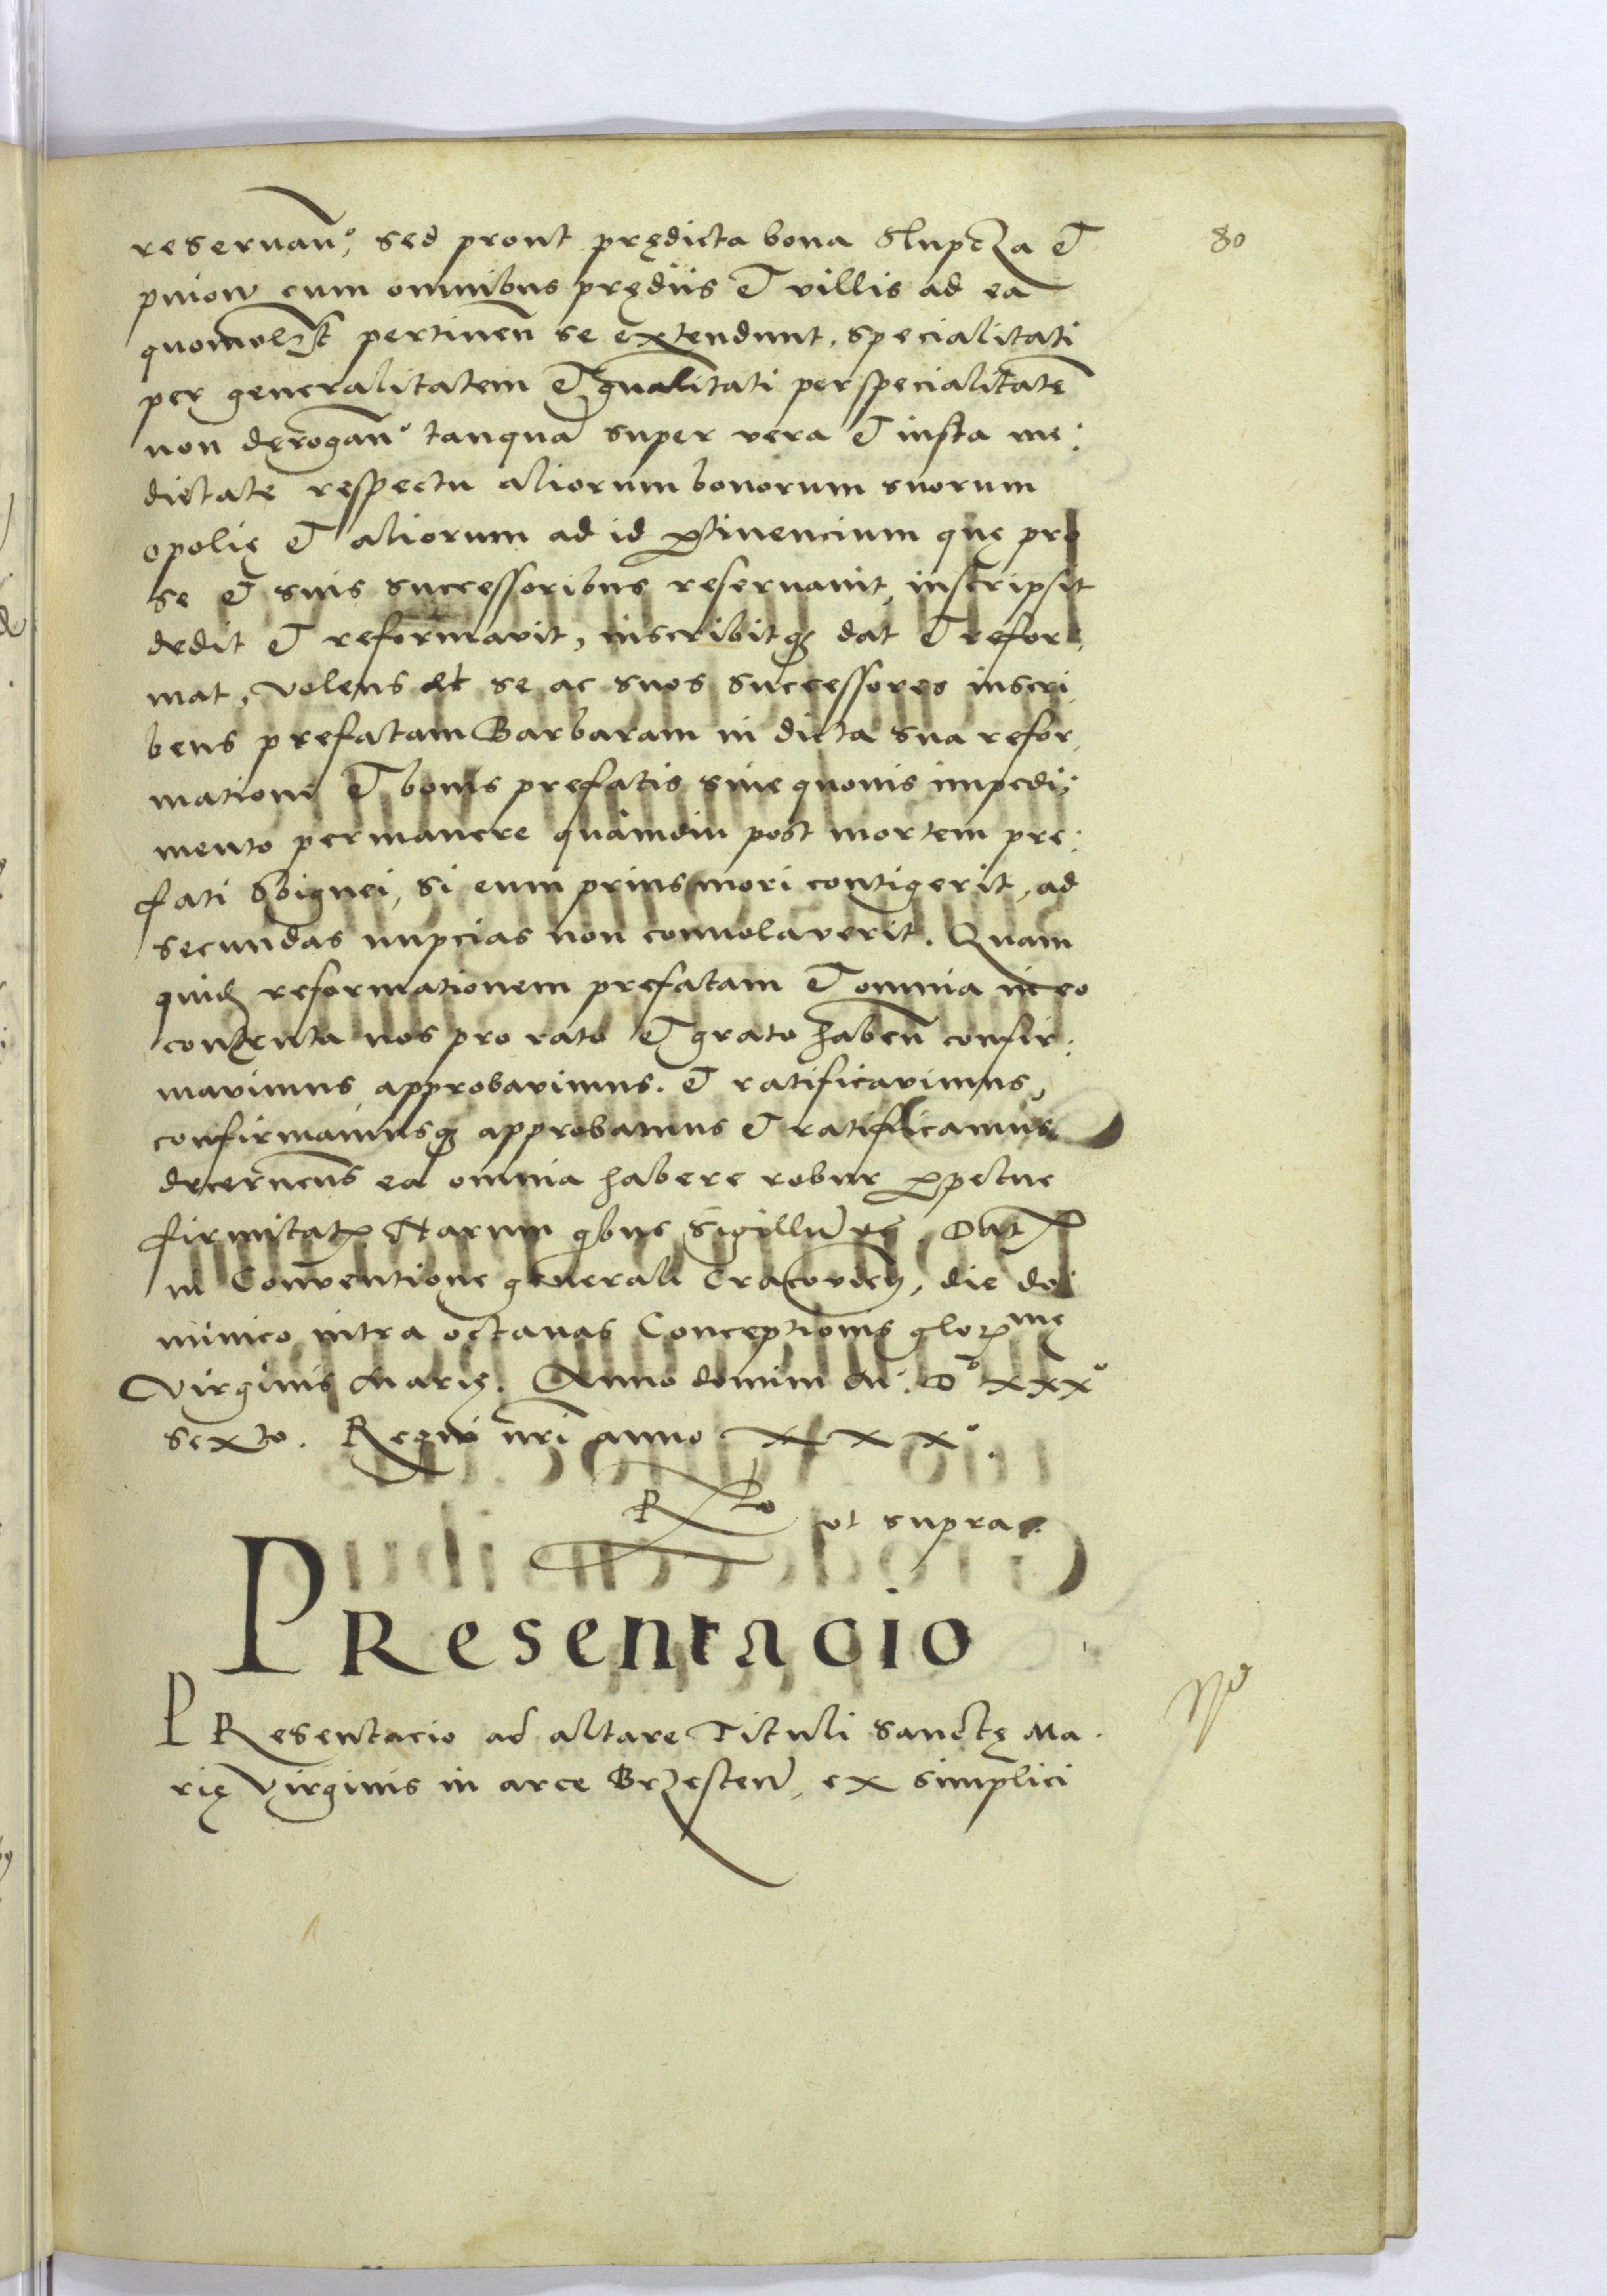 80
reseruan̄°, sed prout prędicta bona Slupcza et
pniow cum omnibus prędiis et villis ad ea
quomolz̄t pertinen̄ se extendunt, specialitati
per generalitatem et gn̄alitati per specialitatē
non derogan̄° tanquā super vera et iusta me:
dietate respectu aliorum bonorum suorum
opolię et aliorum ad id ꝑtinencium quę pro
se et suis successoribus reseruauit, inscripsit
dedit et reformavit, inscribitqꝫ dat et refor,
mat, volens et se ac suos successores inscri,
bens prefatam Barbaram in dicta sua refor,
matione et bonis prefatis sine quouis impedi:
mento permanere quamdiu post mortem pre:
fati Sbignei, si eum prius mori contigerit, ad
secundas nupcias non conuolaverit. Quam
quidē reformationem prefatam et omnia in eo
contenta nos pro rato et grato haben̄ confir:
mavimus approbavimus. et ratificavimus,
confirmamusqꝫ approbamus et ratificamus
decernen̄s ea omnia habere robur ꝑpetue
firmitatꝭ Harum qibus sigillū rē. Datꝭ
in Conventione generali Cracovien̄, die do
minico intra octauas Conceptionis glorꝭmę
virginis Marię. Anno domini M°. D° xxx°
sexto. Regni nr̄i anno xxx°.
Rᵒ ut supra.
PResentacio
PResentacio ad altare Tituli sanctę Ma.
rię Virginis in arce Brzesten̄, ex simplici